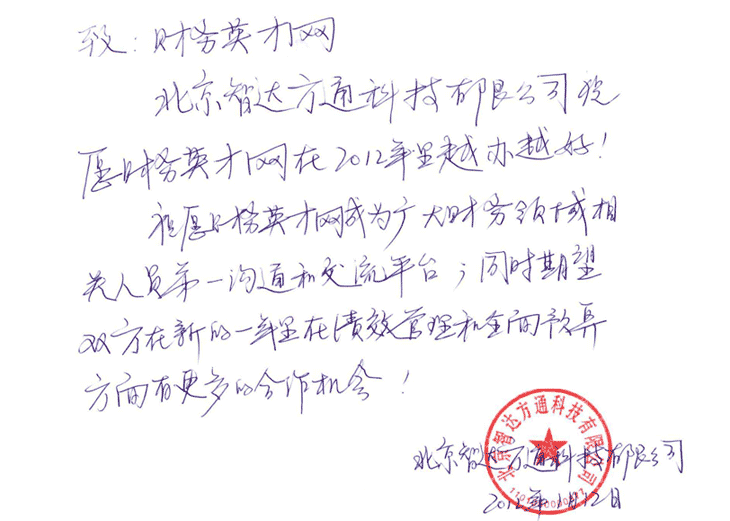 致：财务英才网
北京智达方通科技有限公司祝
愿财务英才网在2012年里越办越好！
祝愿财务英才网成为广大财务领域相
关人员第一沟通和交流平台；同时期望
双方在新的一年里在绩效管理和全面预算
方面有更多的合作机会！
北京智达方通科技有限公司
北京智达方通科技有限公司
2012年1月12日